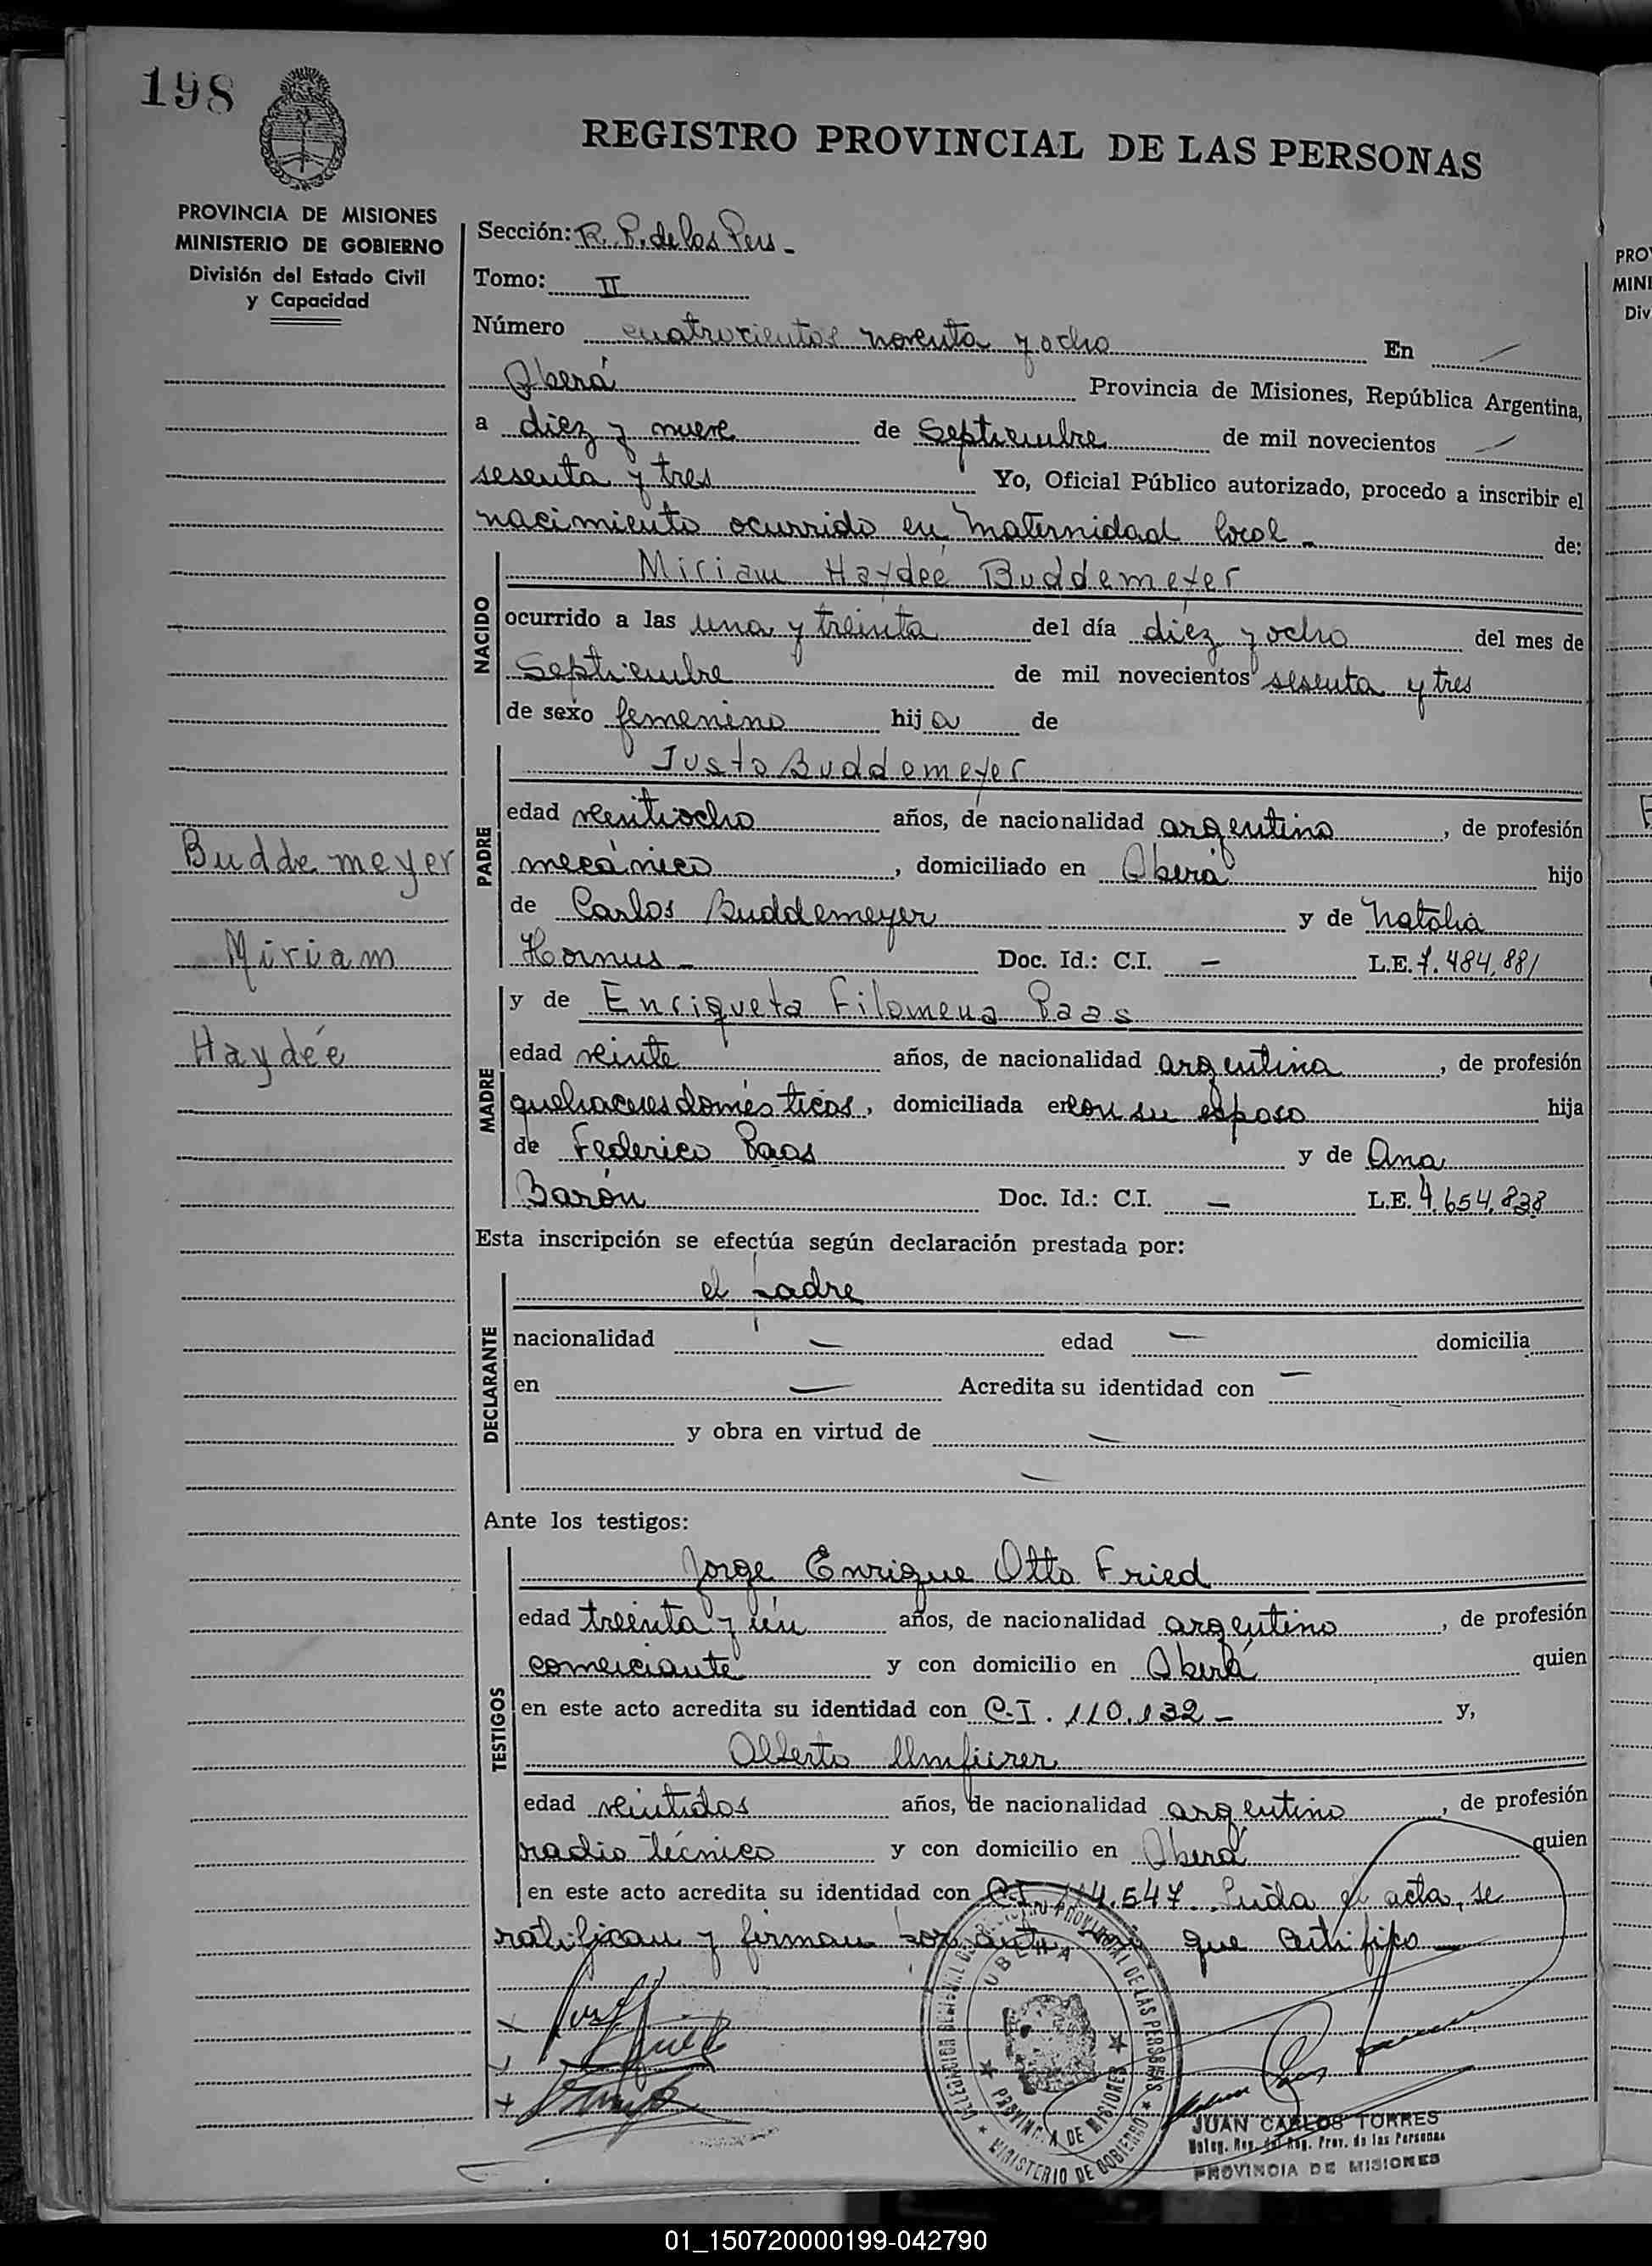 198
REGISTRO PROVINCIAL DE LAS PERSONAS
PROVINCIA DE MISIONES
MINISTERIO DE GOBIERNO
División del Estado Civil
y Capacidad
Sección: R. P. de las Pers -
Tomo: II
Número cuatrocientos noventa y ocho En
Oberá Provincia de Misiones, República Argentina,
a diez y nueve de Septiembre de mil novecientos
sesenta y tres Yo, Oficial Público autorizado, procedo a inscribir el
nacimiento ocurrido en Maternidad local - de:
NACIDO
Miriam Haydeé Buddemeyer
ocurrido a las una y treinta del día diez y ocho del mes de
Septiembre de mil novecientos sesenta y tres
de sexo femenino hija de
PADRE
Justo Buddemeyer
edad veintiocho años, de nacionalidad argentino, de profesión
mecánico, domiciliado en Oberá hijo
de Carlos Buddemeyer y de Natalia
Hornus - Doc. Id.: C.I. - L.E. 7.484,881
Buddemeyer
Miriam
Haydée
MADRE
y de Enriqueta Filomena Paas
edad veinte años, de nacionalidad argentina, de profesión
quehaceres domésticos, domiciliada en con su esposo hija
de Federico Paas y de Ana
Barón Doc. Id.: C.I. - L.E. 4.654.838
Esta inscripción se efectúa según declaración prestada por:
DECLARANTE
el padre
nacionalidad - edad - domicilia
en - Acredita su identidad con -
y obra en virtud de -
-
Ante los testigos:
TESTIGOS
Jorge Enrique Otto Fried
edad treinta y ún años, de nacionalidad argentino, de profesión
comerciante y con domicilio en Oberá quien
en este acto acredita su identidad con C.I. 110.132 - y,
Alberto Umfurer
edad veintidos años, de nacionalidad argentino, de profesión
radio técnico y con domicilio en Oberá quien
en este acto acredita su identidad con C.I. 114.547. Leída el acta, se
ratifican y firman por ante mí que certifico -
DELEGACION REGIONAL DEL REGISTRO PROVINCIAL DE LAS PERSONAS
OBERA
PROVINCIA DE MISIONES
MINISTERIO DE GOBIERNO
JUAN CARLOS TORRES
Deleg. Reg. del Reg. Prov. de las Personas
PROVINCIA DE MISIONES
PRO
MINI
Div
01_150720000199-042790